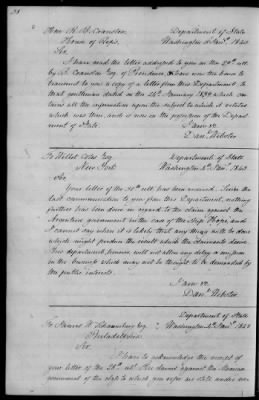 Hon. R. B. Cranston, Department of State
House of Reps. Washington 3d Jany. 1843.
Sir,
I have read the letter addressed to you on the 29th ult.
by Cranston Esq. of Providence, I have now the honor to
transmit to you a copy of a letter from this Department to
that gentleman dated on the 24th January 1839 which con-
tains all the information upon the subject to which it relates
which was then, and is now in the possession of the Depart-
ment of State. I am &c
Danl. Webster
To Willet Coles Esq. Department of State
New York Washington Jany. 1843
Sir,
Your letter of the 31st ult. has been received. Since the
last communication to you from this Department, nothing
further has been done in regard to the claim against the
government in the case of the Ship Hope, and
I cannot say when it is likely that any thing will be done
which might produce the result which the claimants desire.
This department, however, will not allow any delay or omission
in the case which may not be thought to be demanded by
the public interest.
I am &c
Danl. Webster
Department of State
To James W. Esq. Washington Jany. 1843
Philadelphia.
Sir,
I have to acknowledge the receipt of
your letter of the 28th ult. The claim against the Mexican
government of the state to which you refer